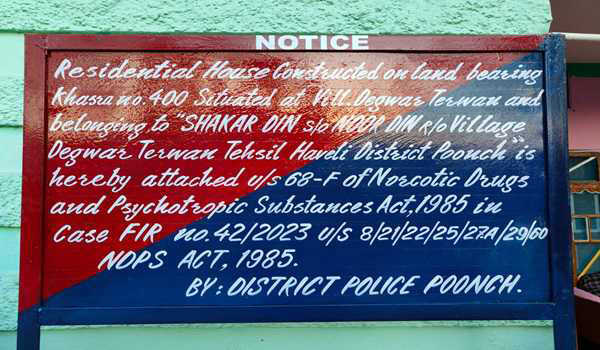 NOTICE
Residential House Constructed on land bearing
Khasra no. 400 Situated at Vill. Degwar Terwan and
belonging to "SHAKAR DIN S/o NOOR DIN R/o Village
Degwar Terwan Tehsil Haveli District Poonch" is
hereby attached u/s 68-F of Norcotic Drugs
and Psychotropic Substances Act, 1985 in
Case FIR no. 42/2023 U/S 8/21/22/25/27A/29/60
NDPS ACT, 1985.
BY: DISTRICT POLICE POONCH.